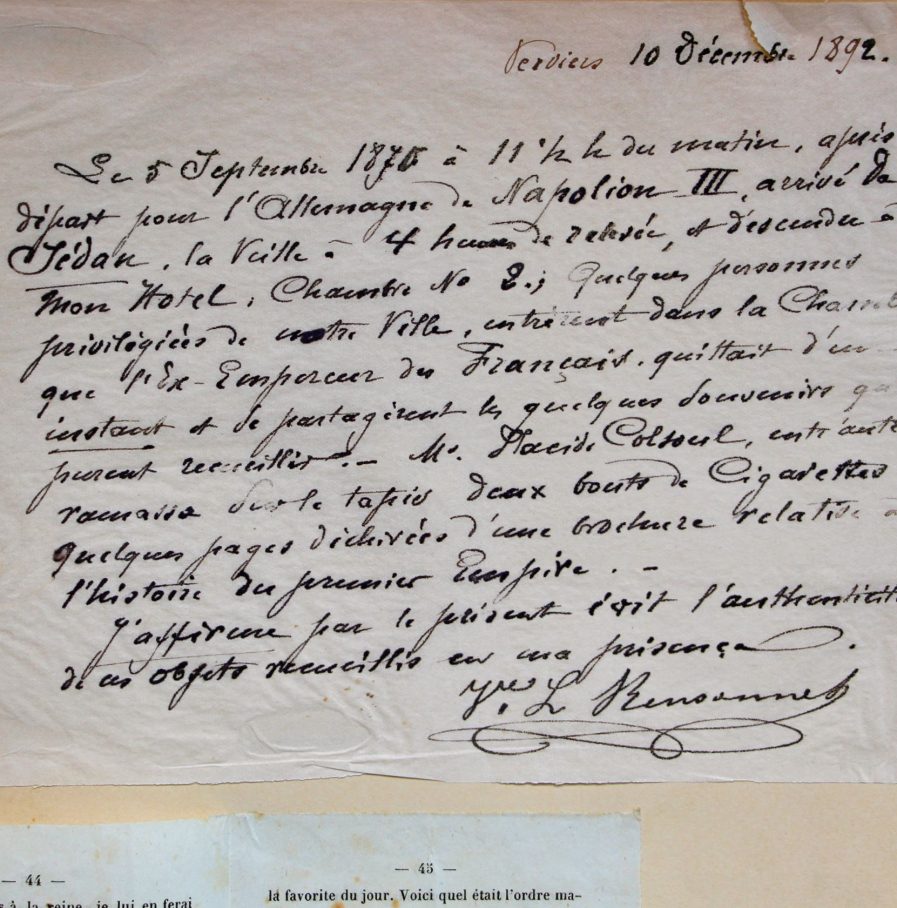 Verviers 10 Décembre 1892.
Le 5 Septembre 1870 à 11 ½ h du matin, après
départ pour l'Allemagne de Napoléon III, arrivé de
Sédan, la Veille à 4 heures de relevée, et descendu à
mon Hotel, Chambre No 2.; Quelques personnes
privilégiées de notre Ville, entrèrent dans la
que l'Ex-Empereur des Français. quittait d'un
instant et se partagèrent les quelques Souvenirs
purent recueillir. — Mr. Placide Colsoul, entr'
ramassa sur le tapis deux bouts de Cigarettes
quelques pages déchirées d'une brochure relative à
l'histoire du premier Empire. —
J'affirme par le présent écrit l'
de ces objets recueillis en ma présence.
Vve L Rensonnet
— 44 —
à la reine, je lui en ferai
— 45 —
la favorite du jour. Voici quel était l'ordre ma-